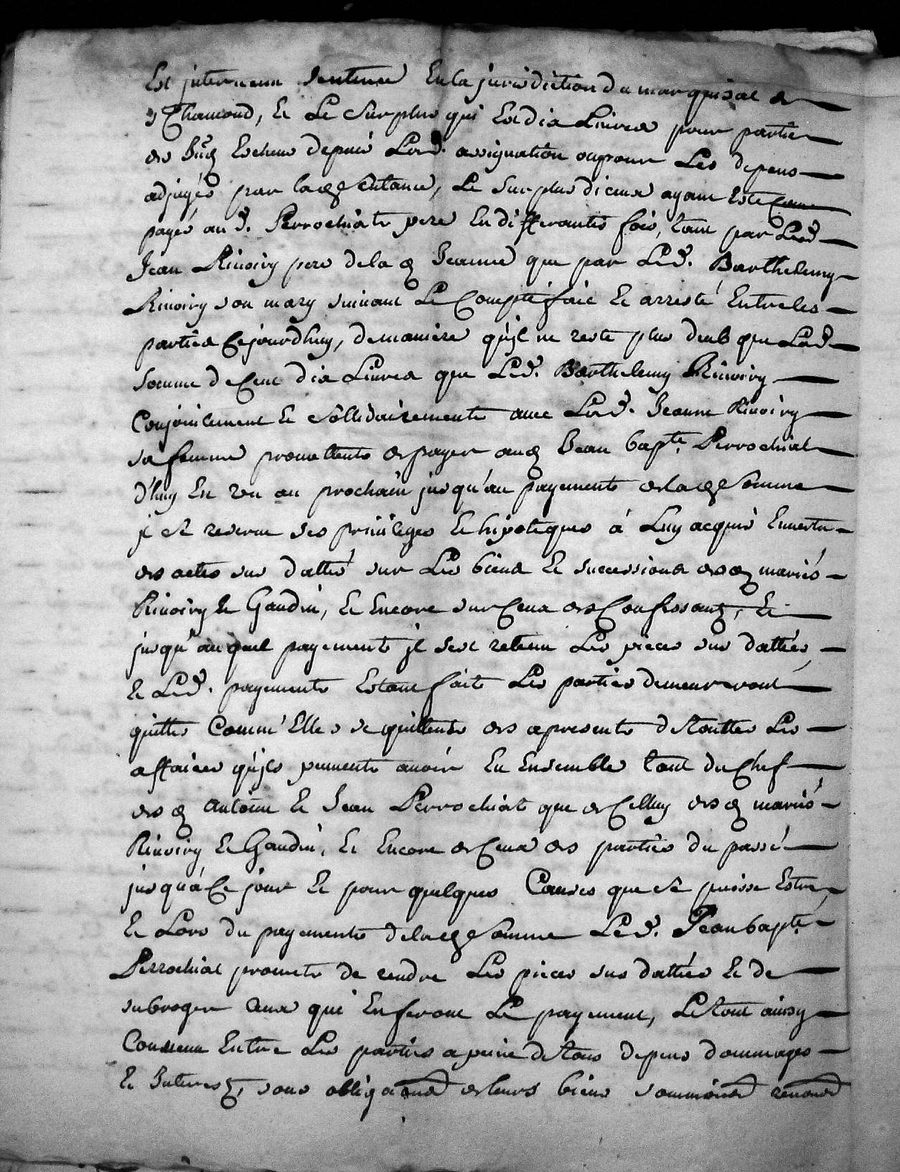 Est intervenu Sentence En la jurisdiction du marquisat de
St Chamond, et Le Surplus qui Est dix Livres pour partie
des Echeus depuis Lad. assignation ou pour Les depens
adjugés par lad Sentence, Le Surplus diceux ayant Esté
payés aud. Perrochiat pere En differantes fois, tant par Led
Jean Rivoiry pere de la d Jeanne que par Led. Barthelemy
Rivoiry son mary suivant Le Compte faic Et arresté Entre les
parties Cejourdhuy, de maniere qu'il ne reste plus deub que Lad
somme de Cent dix Livres que Led. Barthelemy Rivoiry
Conjointement Et Sollidairement avec Lad. Jeanne Rivoiry
sa femme promettent de payer aud Jean bapte Perrochiat
d'huy En un an prochain jusqu'au payement de lad Somme
il se reserve ses privileges Et hipoteques à Luy acquis En vertu
des actes sus dattés sur Les biens Et successions desd mariés
Rivoiry Et Gaudin, Et Encore sur Ceux des Confessants, Et
jusqu'auquel payement il sest retenu Les pieces sus dattées
Et Led. payement Estant fait Les parties demeureront
quittes Comm'Elles se quittent des apresent de touttes Les
affaires qu'ils peuvent avoir Eu Ensemble tant du Chef
desd Antoine Et Jean Perrochiat que de Celluy desd mariés
Rivoiry Et Gaudin, Et Encore de Ceux des parties du passé
jusqu'à Ce jour Et pour quelques Causes que Ce puisse Estre
Et Lors du payement de lad Somme Led. Jean bapte
Perrochiat promet de rendre Les pieces sus dattées Et de
subroger Ceux qui En feront Le payement, Le tout ainsy
Convenu Entre Les parties a peine de tous depens dommages
Et Interest, sous obligaons de leurs biens soumissions renonciaons